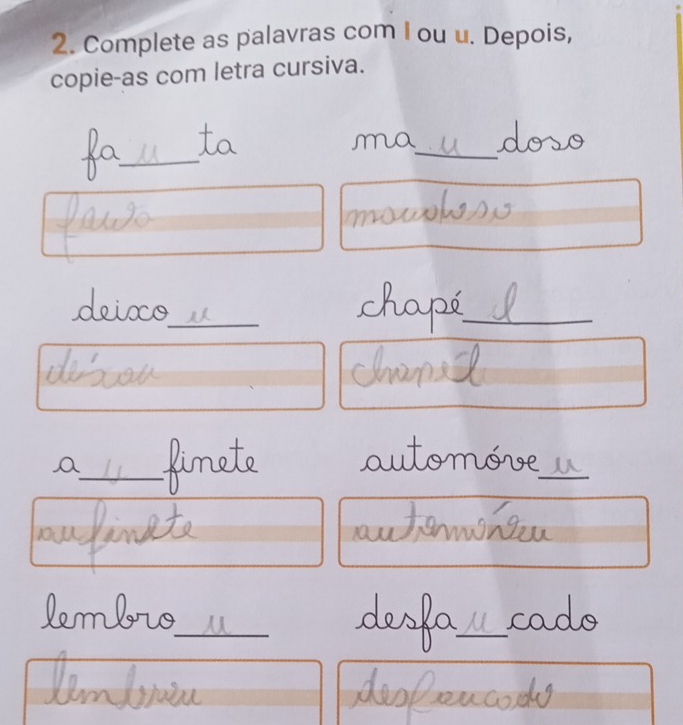 2. Complete as palavras com l ou u. Depois,
copie-as com letra cursiva.
fa u ta ma u doso
deixo u chapé l
deixou chapél
a u finete automóve u
aufinete automóveu
lembro u desfa u cado
desfaucado